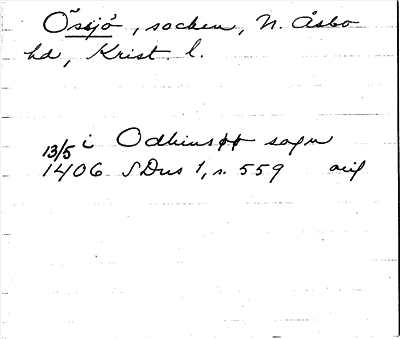 Össjö, socken, N. Åsbo
hd, Krist. l.
13/5 i Odhins sogn
1406 SDns 1, s. 559 orig